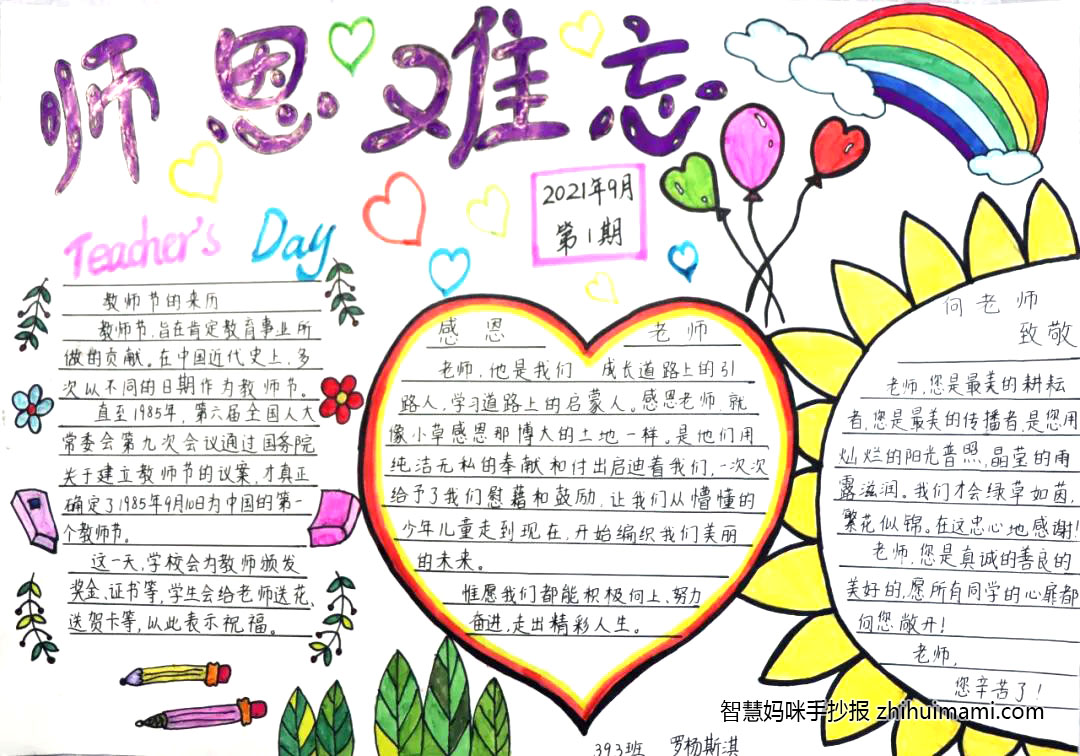 师恩难忘
Teacher's Day
2021年9月
第1期
教师节的来历
教师节,旨在肯定教育事业所
做的贡献。在中国近代史上,多
次从不同的日期作为教师节。
直至1985年,第六届全国人大
常委会第九次会议通过国务院
关于建立教师节的议案,才真正
确定了1985年9月10日为中国的第一
个教师节。
这一天,学校会为教师颁发
奖金、证书等,学生会给老师送花、
送贺卡等,以此表示祝福。
感恩 老师
老师,他是我们 成长道路上的引
路人,学习道路上的启蒙人。感恩老师,就
像小草感恩那博大的土地一样。是他们用
纯洁无私的奉献和付出启迪着我们,一次次
给予了我们慰藉和鼓励,让我们从懵懂的
少年儿童走到现在,开始编织我们美丽
的未来。
惟愿我们都能积极向上、努力
奋进,走出精彩人生。
向老师
致敬
老师,您是最美的耕耘
者,您是最美的传播者,是您用
灿烂的阳光普照,晶莹的雨
露滋润。我们才会绿草如茵,
繁花似锦。在这忠心地感谢!
老师,您是真诚的善良的
美好的,愿所有同学的心扉都
向您敞开!
老师,
您辛苦了!
393班 罗杨斯淇
智慧妈咪手抄报 zhihuimami.com